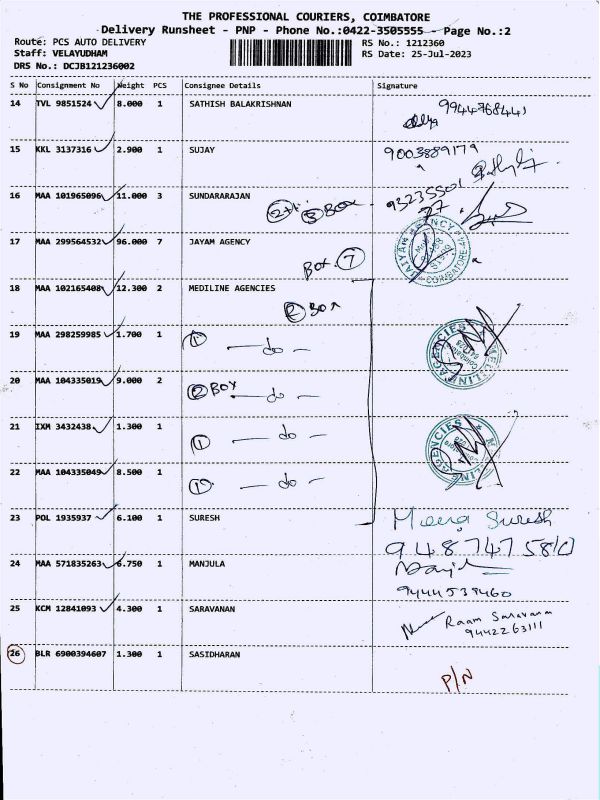 THE PROFESSIONAL COURIERS, COIMBATORE
Delivery Runsheet - PNP - Phone No.:0422-3505555 - Page No.:2
Route: PCS AUTO DELIVERY RS No.: 1212360
Staff: VELAYUDHAM RS Date: 25-Jul-2023
DRS No.: DCJB121236002
S No Consignment No Weight PCS Consignee Details Signature
14 TVL 9851524 8.000 1 SATHISH BALAKRISHNAN
15 KKL 3137316 2.900 1 SUJAY 9003889179
16 MAA 101965096 11.000 3 SUNDARARAJAN
2+1 3 BOX
17 MAA 299564532 96.000 7 JAYAM AGENCY
BOX 7
COIMBATORE
18 MAA 102165408 12.300 2 MEDILINE AGENCIES
2 BOX
19 MAA 298259985 1.700 1 1 — do —
AGENCIES
20 MAA 104335019 9.000 2 2 BOX — do —
21 IXM 3432438 1.300 1 1 — do —
AGENCIES
22 MAA 104335049 8.500 1 1 — do —
23 POL 1935937 6.100 1 SURESH Meera Suresh
24 MAA 571835263 6.750 1 MANJULA
9444538460
25 KCM 12841093 4.300 1 SARAVANAN Raam Saravana
9442263111
26 BLR 6900394607 1.300 1 SASIDHARAN
P/N